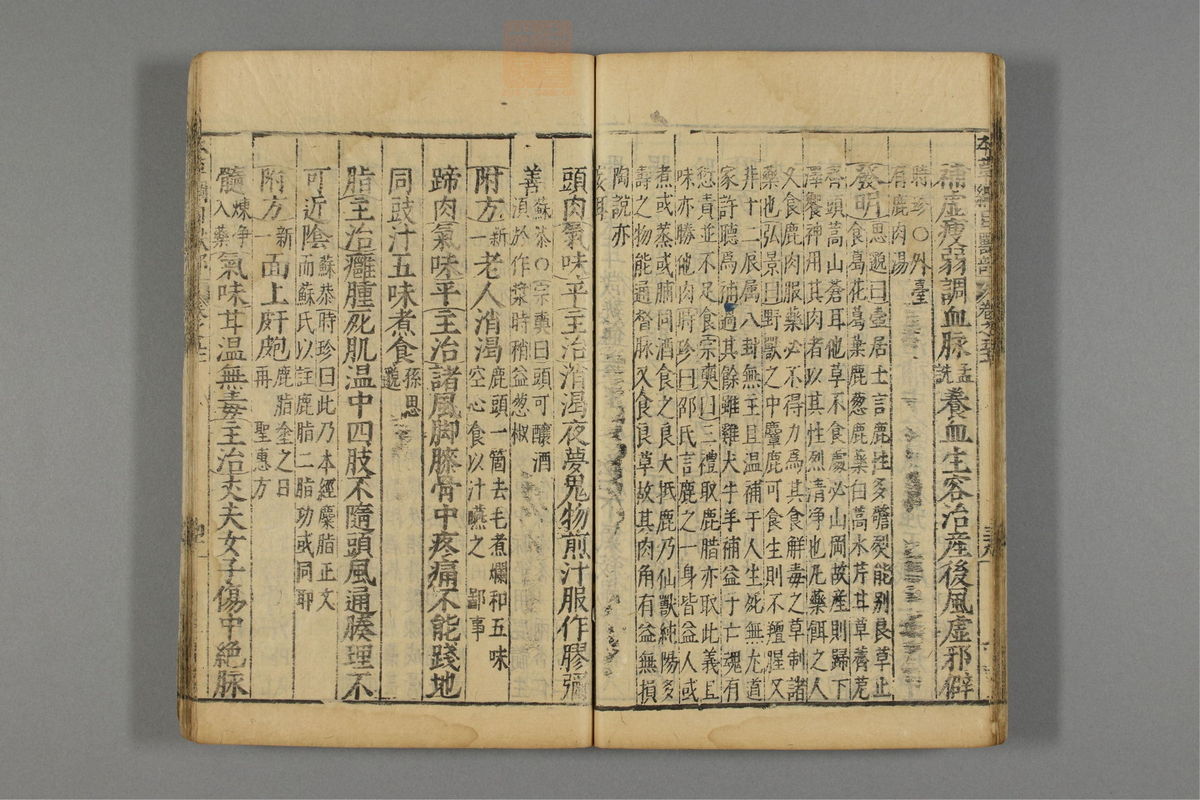 補虛瘦弱調血脉孟詵養血生容治産後風虛邪僻
時珍○外臺
有鹿肉湯
發明思邈曰壺居士言鹿性多驚烈能别良草止
食葛花葛葉鹿葱鹿藥白蒿水芹甘草薺苨
齊頭蒿山蒼耳他草不食處必山岡故産則歸下
澤饗神用其肉者以其性烈清净也凡藥餌之人
久食鹿肉服藥必不得力爲其食解毒之草制諸
藥也弘景曰野獸之中麞鹿可食生則不羶腥又
非十二辰属八卦無主且温補于人生死無尤道
家許聽爲補過其餘雖雞犬牛羊補益于亡魂有
愆責並不足食宗奭曰三禮取鹿腊亦取此義且
味亦勝他肉時珍曰邵氏言鹿之一身皆益人或
煮或蒸或脯同酒食之良大抵鹿乃仙獸純陽多
壽之物能通督脉又食良草故其肉角有益無損
陶說亦
玅耳
頭肉氣味平主治消渴夜夢鬼物煎汁服作膠彌
善蘇恭○宗奭曰頭可釀酒
須於作漿時稍益葱椒
附方新一老人消渴鹿頭一箇去毛煮爛和五味
空心食以汁嚥之鄙事
蹄肉氣味平主治諸風脚膝骨中疼痛不能踐地
同豉汁五味煮食孫思邈
脂主治癰腫死肌温中四肢不隨頭風通腠理不
可近陰蘇恭時珍曰此乃本經麋脂正文
而蘇氏以註鹿脂二脂功或同耶
附方新一面上皯皰鹿脂塗之日
再聖惠方
髓煉净入藥氣味甘温無毒主治丈夫女子傷中絶脉